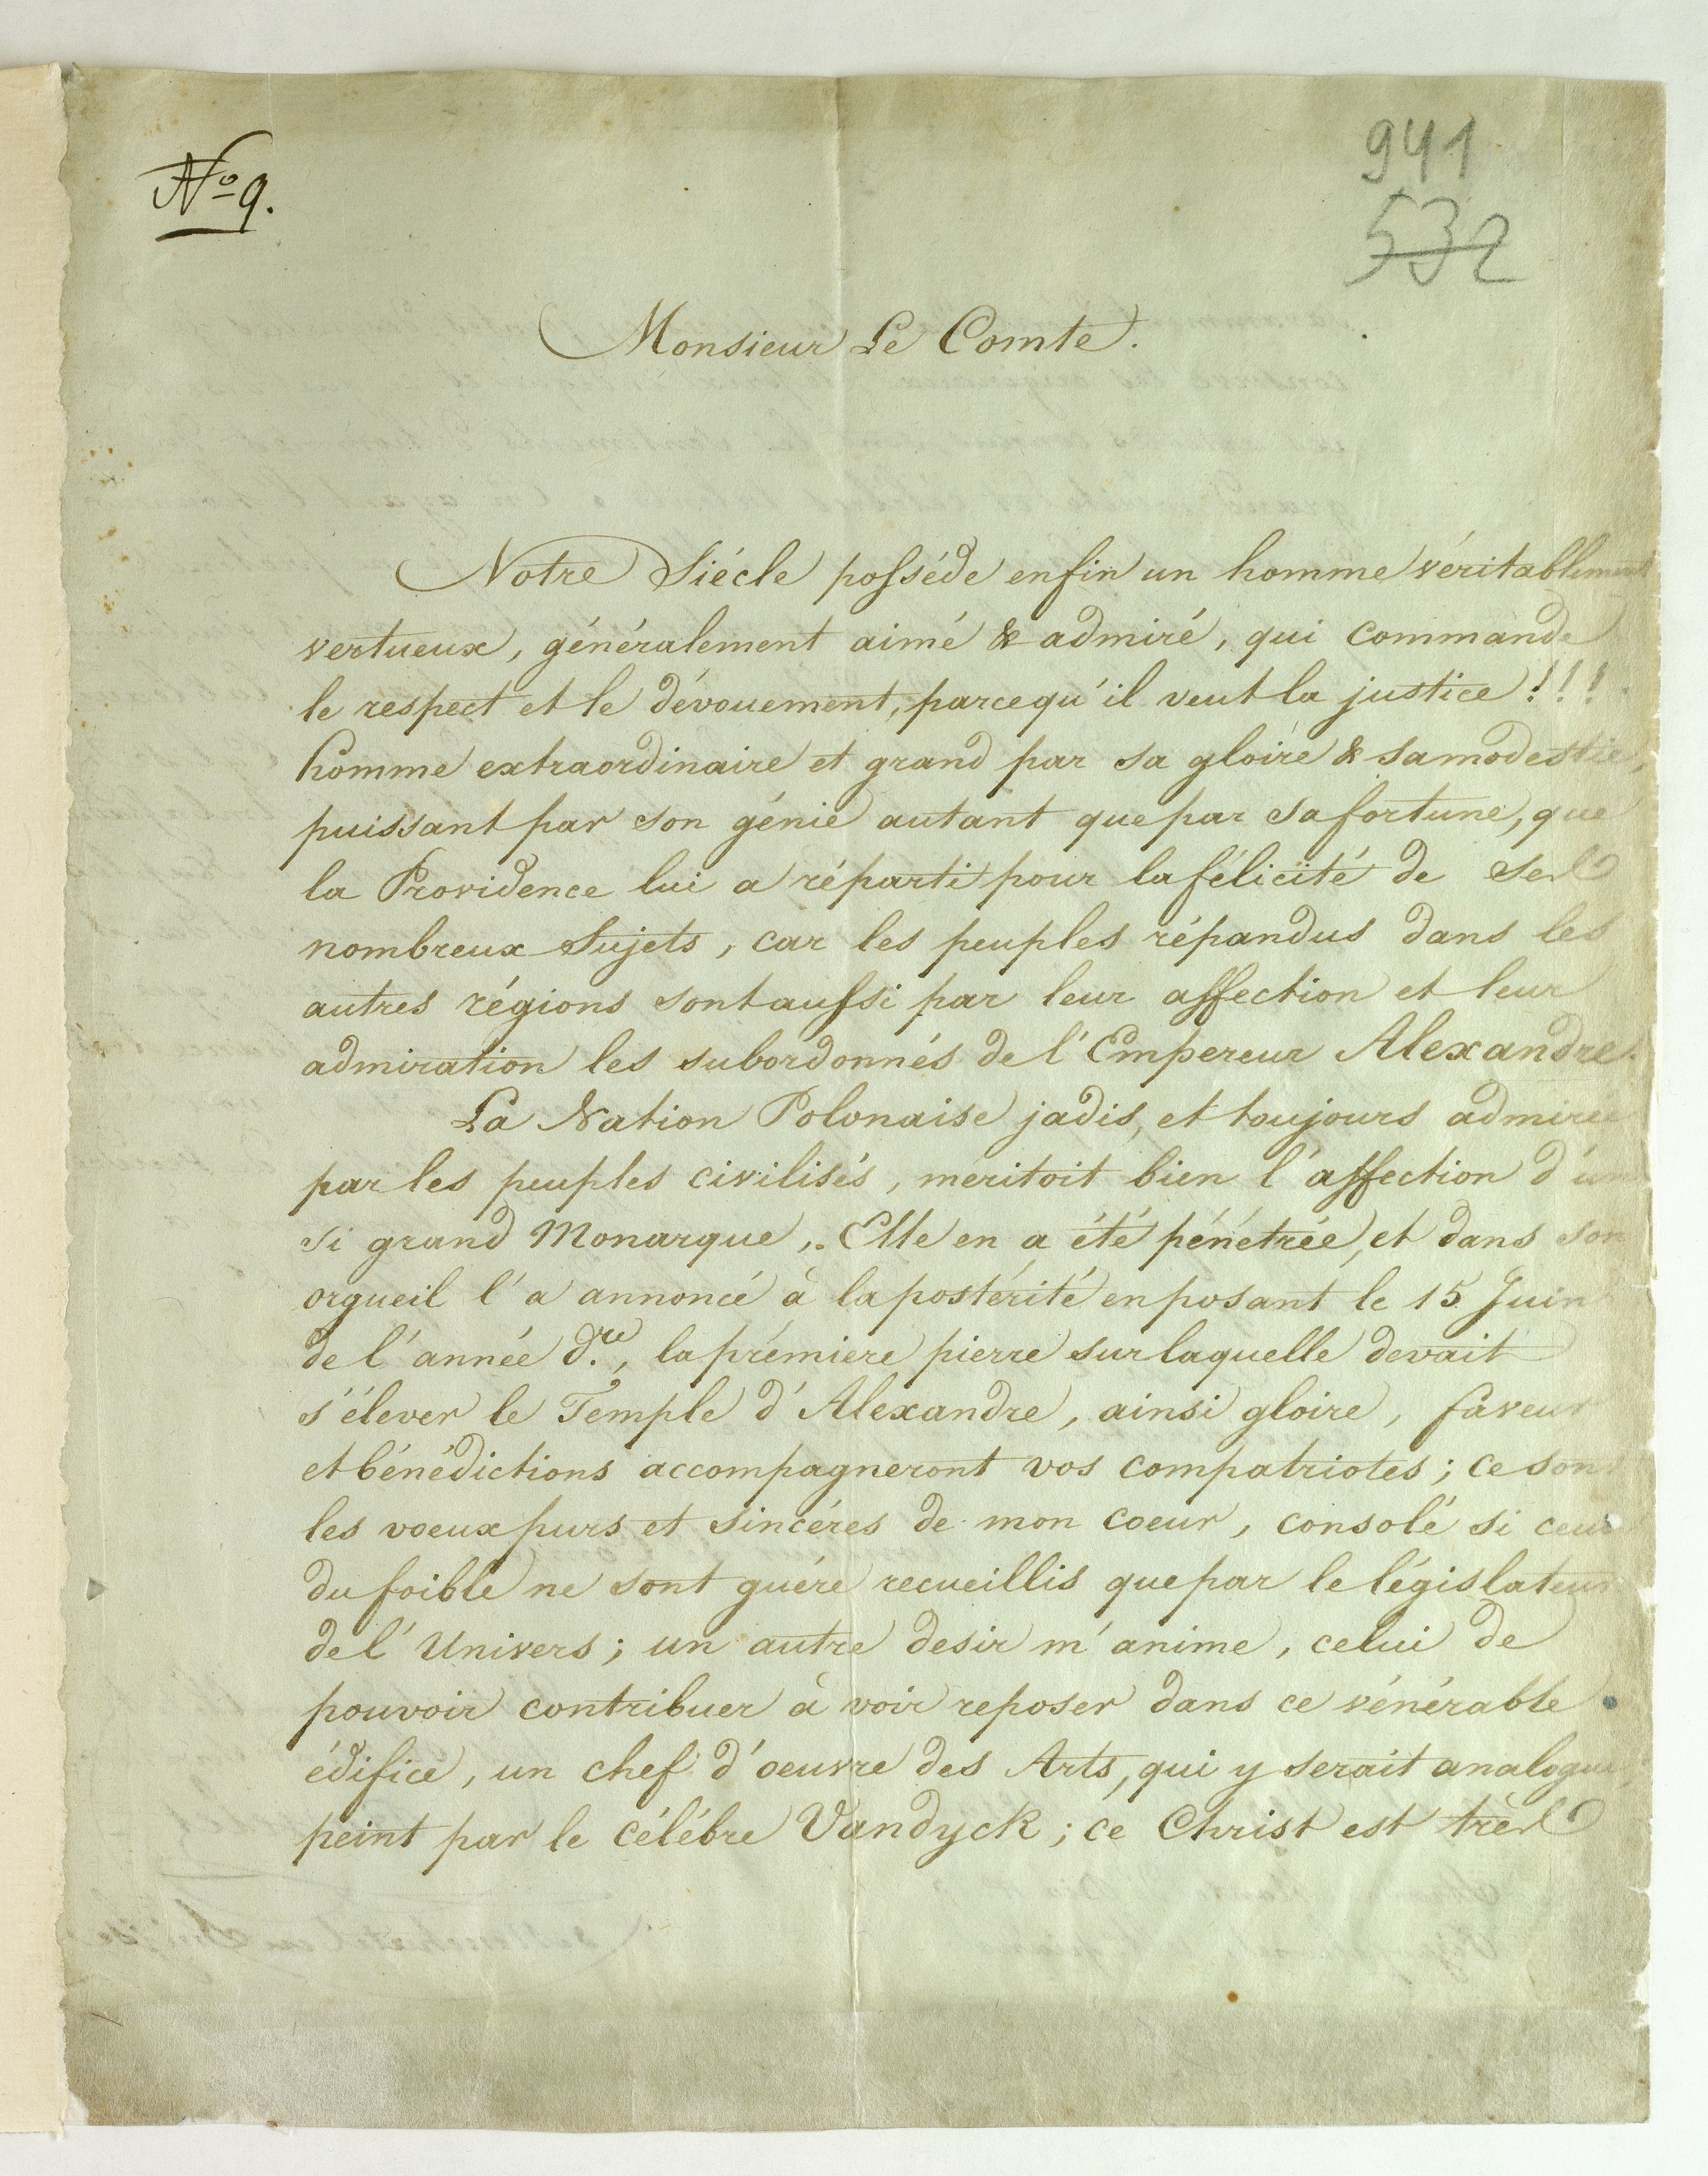 Nº 9.
941
532
Monsieur Le Comte.
Notre Siécle posséde enfin un homme véritablement
vertueux, généralement aimé & admiré, qui commande
le respect et le dévouement, parcequ'il veut la justice!!!
homme extraordinaire et grand par sa gloire & sa modestie,
puissant par son génie autant que par sa fortune, que
la Providence lui a réparti pour la félicité de ses
nombreux Sujets, car les peuples répandus dans les
autres régions sont aussi par leur affection et leur
admiration les subordonnés de l'Empereur Alexandre.
La Nation Polonaise jadis, et toujours admirée
par les peuples civilisés, meritoit bien l'affection d'un
si grand Monarque, Elle en a été pénétrée, et dans son
orgueil l'a annoncé à la postérité en posant le 15 Juin
de l'année d.re, la prémiere pierre sur laquelle devait
s'élever le Temple d'Alexandre, ainsi gloire, faveur
et bénédictions accompagneront vos compatriotes; ce sont
les voeux purs et sincéres de mon coeur, consolé si ceux
du foible ne sont guére recueillis que par le législateur
de l'Univers; un autre desir m'anime, celui de
pouvoir contribuer à voir reposer dans ce vénérable
édifice, un chef d'oeuvre des Arts, qui y serait analogue,
peint par le célébre Vandyck; ce Christ est très